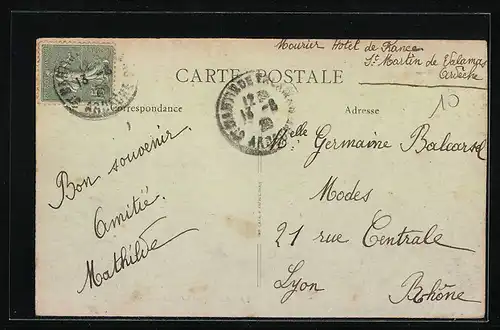 Mourier Hotel de France
St Martin de Valamas
Ardèche
CARTE POSTALE
Correspondance
Adresse
10
Bon souvenir
Amitié.
Mathilde
Melle Germaine Balcarsel
Modes
21 rue Centrale
Lyon Rhône